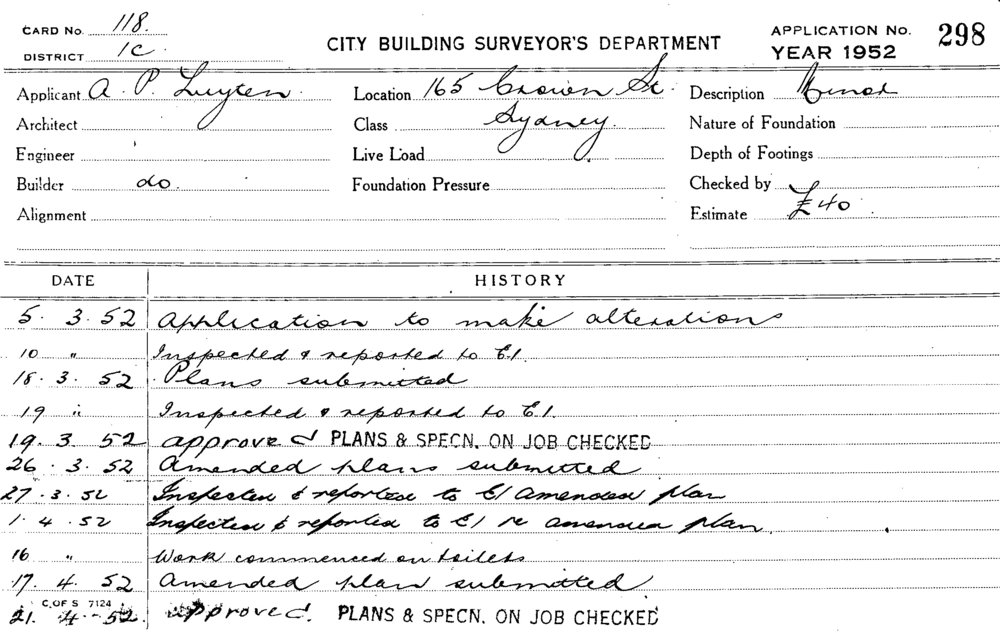 CARD No. 118.
DISTRICT 1C
CITY BUILDING SURVEYOR'S DEPARTMENT
APPLICATION No. 298
YEAR 1952
Applicant A. P. Luyten Location 165 Crown St. Description Minor
Architect Class Sydney. Nature of Foundation
Engineer Live Load Depth of Footings
Builder do. Foundation Pressure Checked by
Alignment Estimate £40
DATE HISTORY
5. 3. 52 Application to make alterations
10 " Inspected & reported to E.I.
18. 3. 52 Plans submitted
19 " Inspected & reported to E.I.
19. 3. 52 approved PLANS & SPECN. ON JOB CHECKED
26. 3. 52 Amended plans submitted
27. 3. 52 Inspected & reported to EI amended plan
1. 4. 52 Inspected & reported to EI re amended plan.
16 " Work commenced on toilets
17. 4. 52 Amended plan submitted.
C. OF S 7124
21. 4. 52. approved. PLANS & SPECN. ON JOB CHECKED